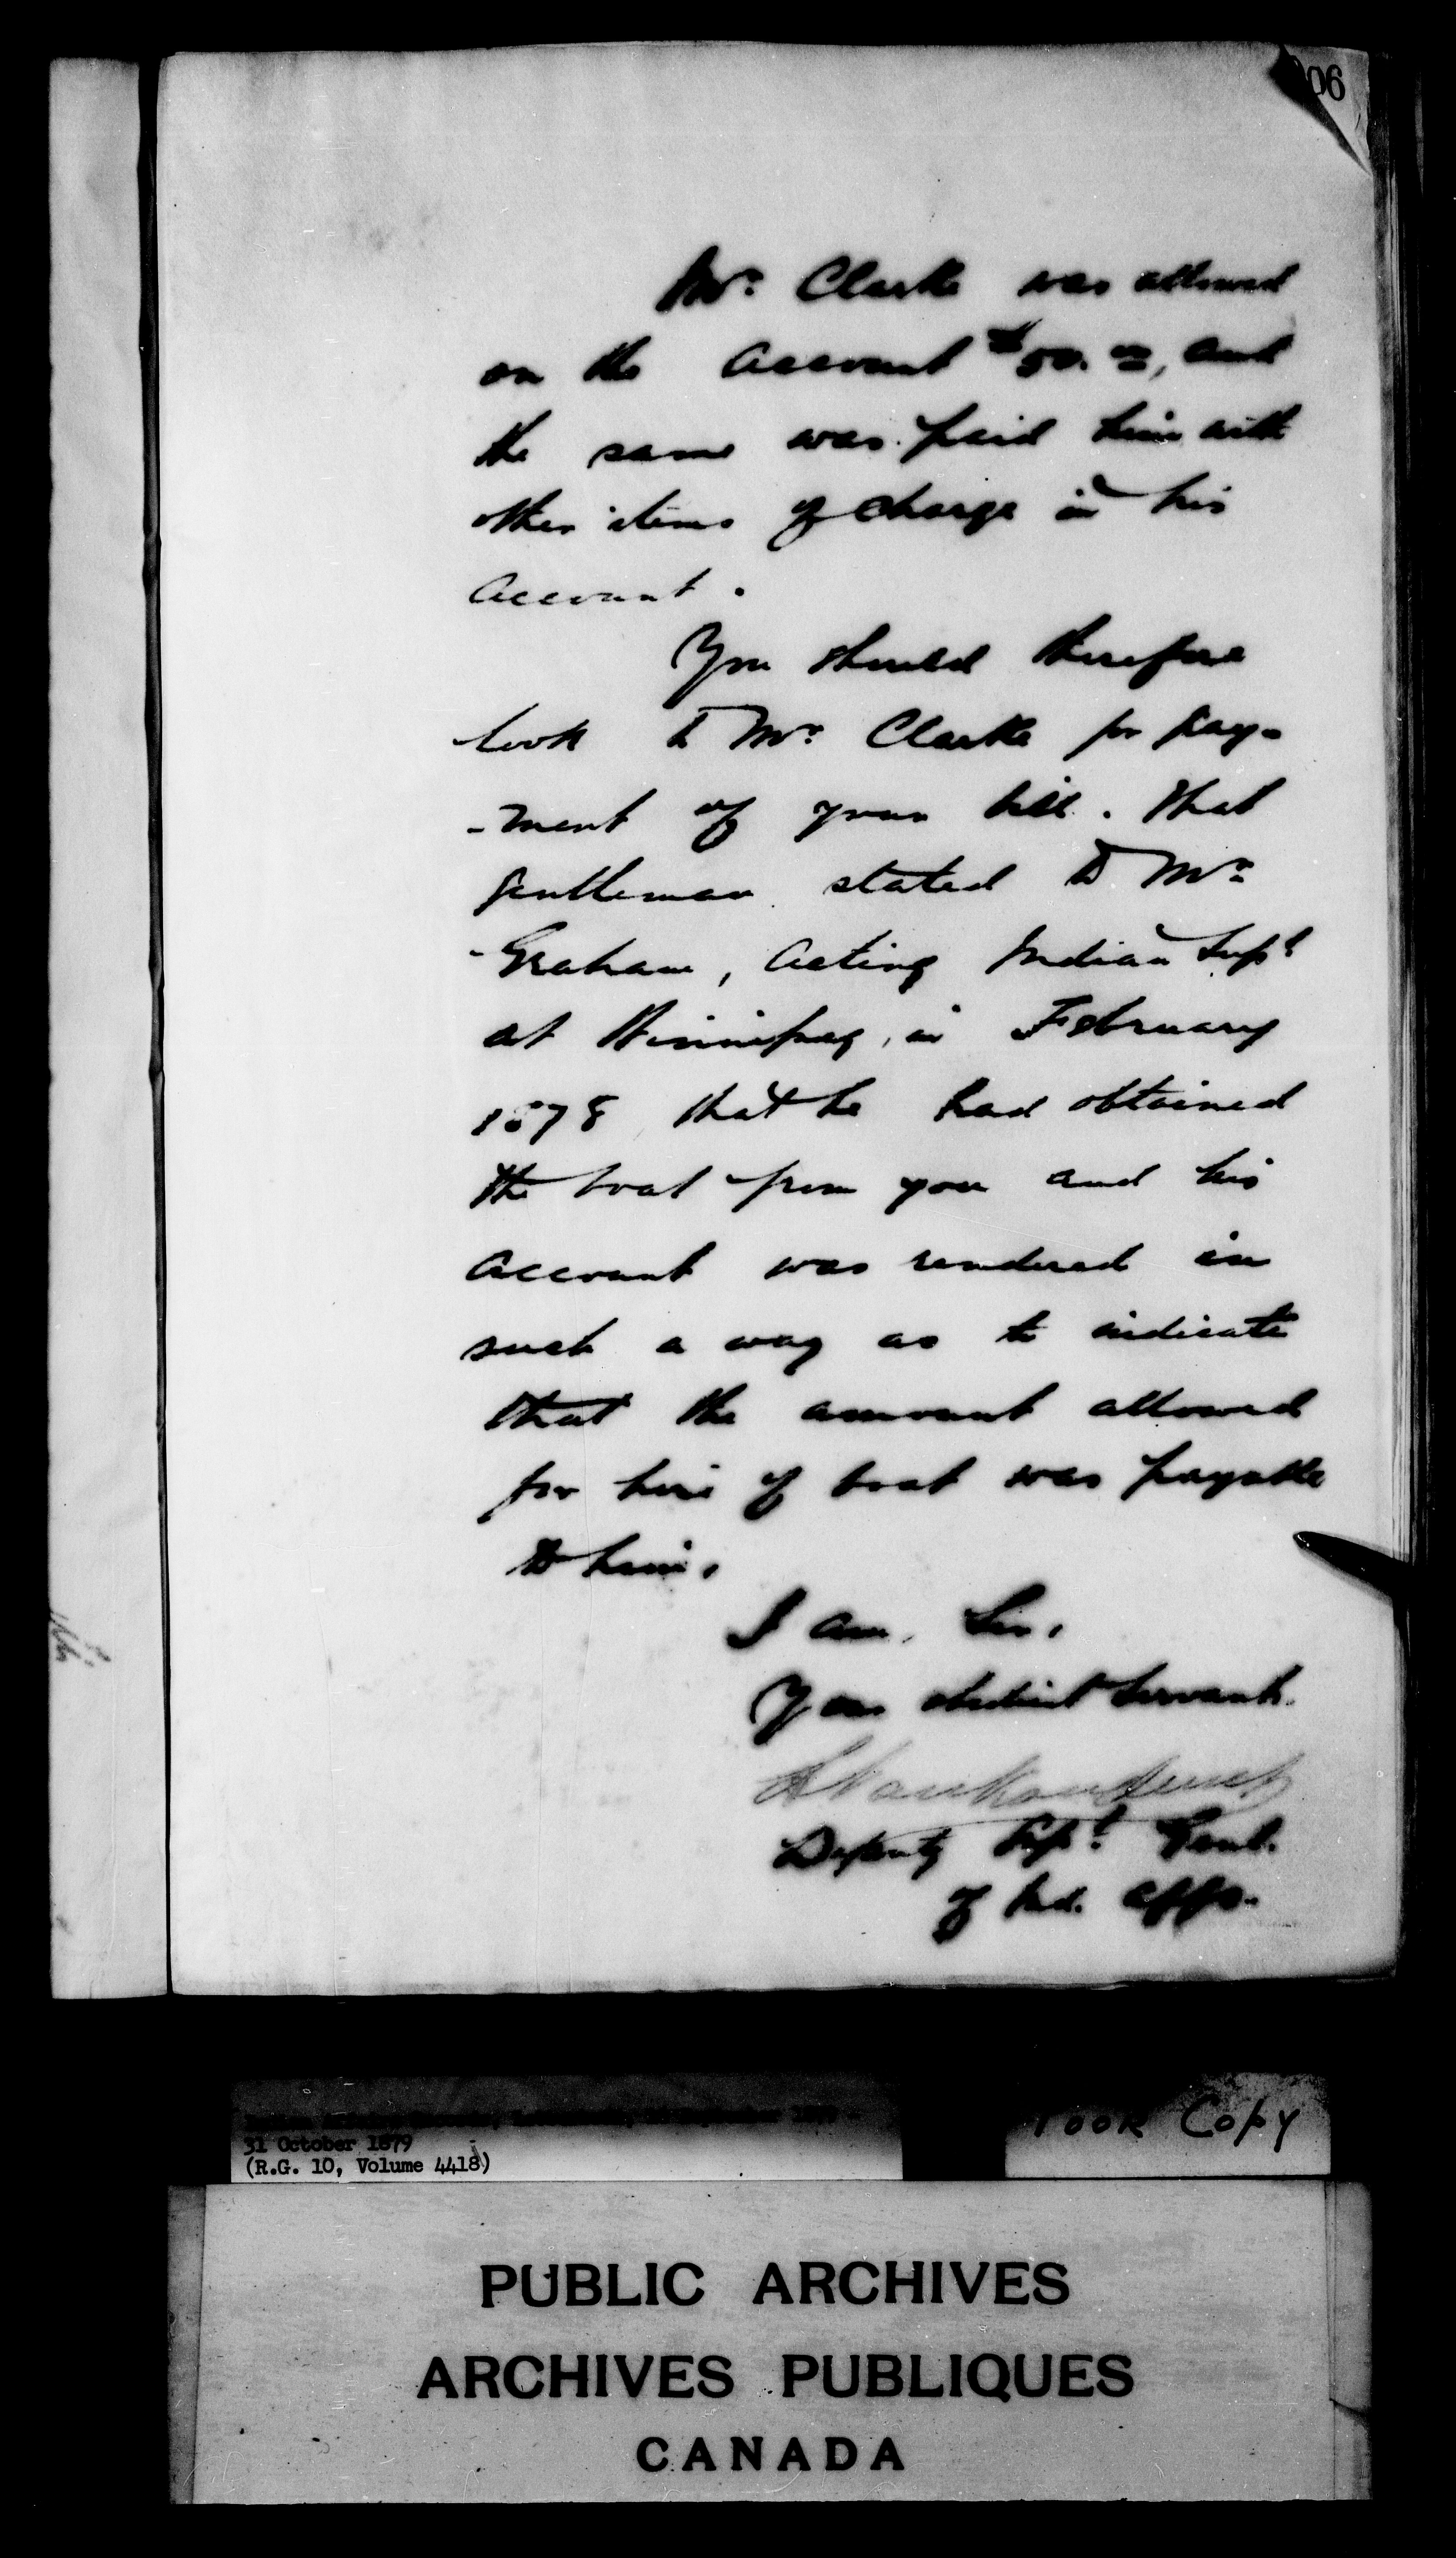 06
Mr. Clarke was allowed
on the Account $50.00, and
the same was paid him with
other items of charge in his
Account.
You should therefore
look to Mr. Clarke for pay-
-ment of your bill. That
gentleman stated to Mr.
Graham, Acting Indian Supt
at Winnipeg, in February
1878 that he had obtained
the boat from you and his
Account was rendered in
such a way as to indicate
that the amount allowed
for hire of boat was payable
to him.
I am, Sir,
Your obedient Servant.
L Vankoughnet
Deputy Supt. Genl.
of Ind. Affs.
31 October 1879
(R.G. 10, Volume 4418)
Took Copy
PUBLIC ARCHIVES
ARCHIVES PUBLIQUES
CANADA